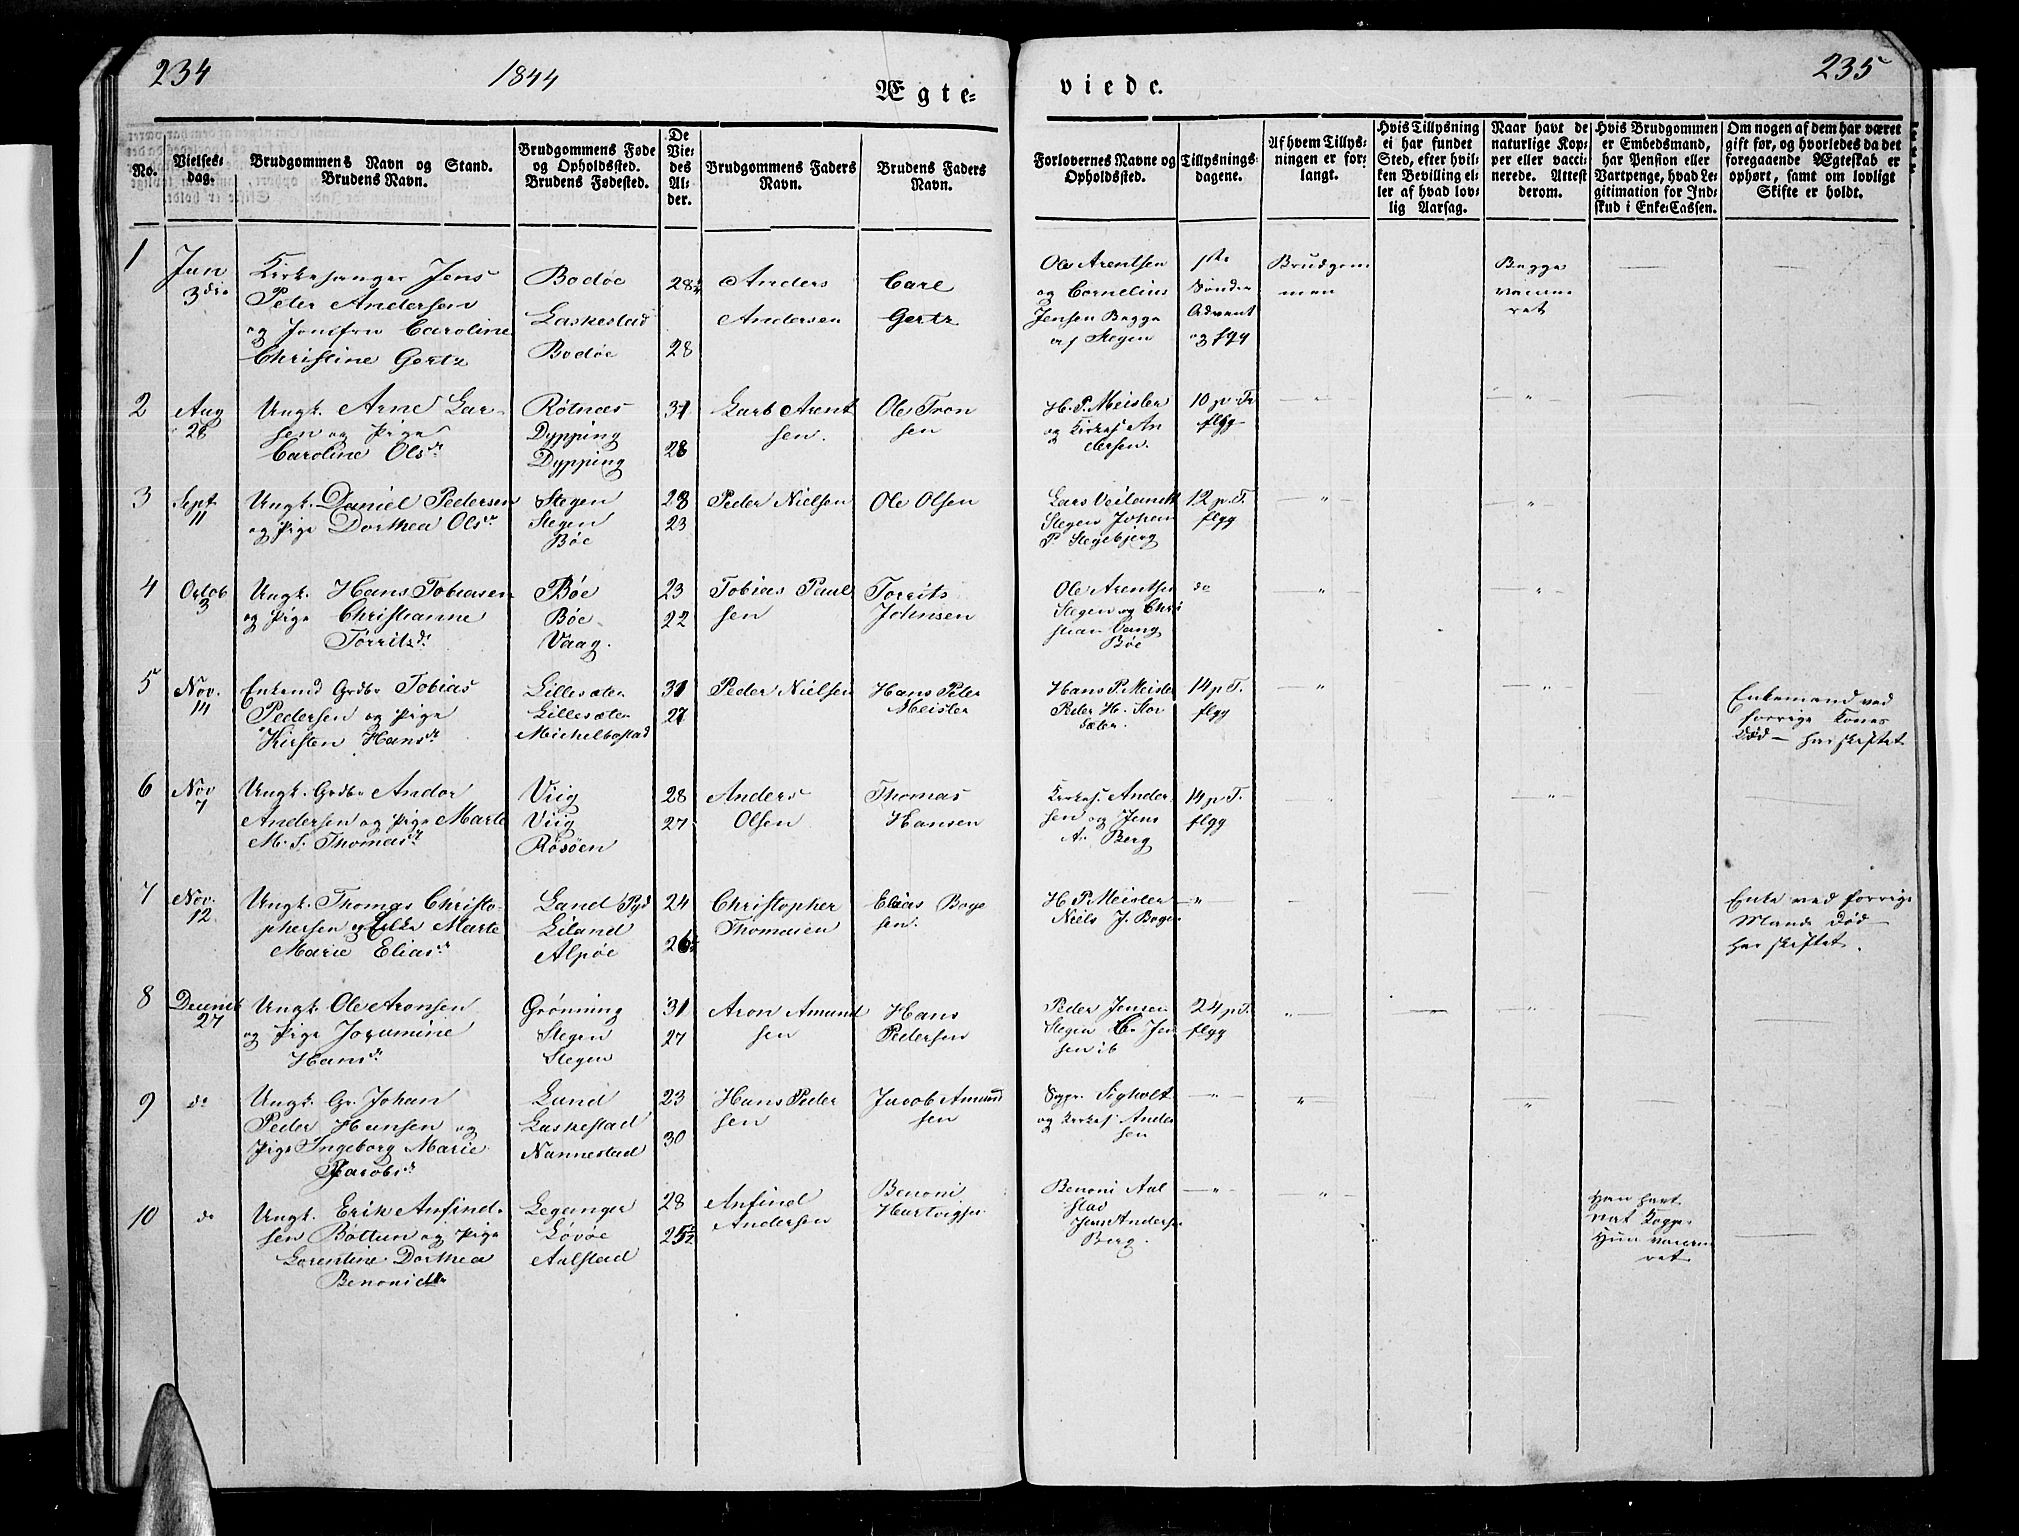 234
1844
Ægte=
viede.
235
No.
Vielses=
dag.
Brudgommens Navn og Stand.
Brudens Navn.
Brudgommens Føde
og Opholdssted.
Brudens Fødested.
De
Vie=
des
Al=
der.
Brudgommens Faders
Navn.
Brudens Faders
Navn.
Forlovernes Navne og
Opholdssted.
Tillysnings=
dagene.
Af hvem Tillys=
ningen er for=
langt.
Hvis Tillysning
ei har fundet
Sted, efter hvil=
ken Bevilling el=
ler af hvad lov=
lig Aarsag.
Naar havt de
naturlige Kop=
per eller vacci=
nerede. Attest
derom.
Hvis Brudgommen
er Embedsmand,
har Pension eller
Vartpenge, hvad Le=
gitimation for Ind=
skud i Enke-Cassen.
Om nogen af dem har været
gift før, og hvorledes da det
foregaaende Ægteskab er
ophørt, samt om lovligt
Skifte er holdt.
1
Jan
3die
Kirkesanger Jens
Peder Andersen
og Jomfru Caroline
Christine Gertz
Bodøe
Laskestad
Bodøe
28
28
Anders
Andersen
Carl
Gertz
Ole Arentsen
og Cornelius
Jensen Bagge
af Stegen
1ste
Søndr
Advent
og flgg
Brudgom
men
Begge
vaccine
ret
2
Aug
28
Ungk. Arne Lar-
sen og Pige
Caroline Olsdr
Røtnæs
Dypping
Dypping
31
28
Lars Arent
sen.
Ole Tron
sen
H. P. Meisler
og Kirkes. An
dersen.
10 p. Tr
flgg
3
Sept.
11
Ungk. Daniel Pedersen
og Pige Dorthea Olsdr
Stegen
Stegen
Bøe
28
23
Peder Nielsen
Ole Olsen
Lars Veilandt
Stegen Johan
P. Stegebjerg
12 p. T.
flgg
4
Octob
3
Ungk. Hans Tobiasen
og Pige Christianne
Torritsdr
Bøe
Bøe
Vaag.
23
22
Tobias Paul
sen
Torrits
Johnsen
Ole Arentsen
Stegen og Chri
stian Vang
Bøe
do
5
Nov.
14
Enkemd Grdbr Tobias
Pedersen og Pige
Kirsten Hansdr
Lillesæter
Lillesæter
Michelbostad
31
27
Peder Nielsen
Hans Peter
Meisler
Hans P. Meisler
Peder H. Stor
Sæter.
14 p T.
flgg
Enkemand ved
forrige Kones
Død – har skiftet
6
Nov
7
Ungk. Grdbr Andor
Andersen og Pige Marte
M. S. Thomasdr
Viig
Viig
Røsøen
28
27
Anders
Olsen
Thomas
Hansen
Kirkes. Ander-
sen og Jens
A. Berg
14 p. T.
flgg
7
Nov.
12
Ungk. Thomas Christo-
phersen og Enke Marte
Marie Eliasdr
Land
Leiland
Alpøe
24
26
Christopher
Thomasen
Elias Boge
sen.
H. P. Meisler
Niels J. Bogen
Enke ved forrige
Mands Død
har skiftet.
8
Decemb
27
Ungk. Ole Aronsen
og Pige Joramine
Hansdr
Grønning
Stegen
Stegen
31
27
Aron Amund
sen
Hans
Pedersen
Peder Jensen
Stegen C. Jen
sen ib
24 p T.
flgg
9
do
Ungk. Gr. Johan
Peder Hansen og
Pige Ingeborg Marie
Jacobsdr
Lund
Laskestad
Nannestad
23
30
Hans Peder
sen
Jacob Amund
sen
Sigholt
og Kirkes. Ander
sen
10
do
Ungk. Erik Anfind-
sen Bøttun og Pige
Lorentine Dorthea
Benonidtr
Leganger
Løvøe
Aalstad
28
25½
Anfind
Andersen
Benoni
Hartvigsen
Benoni Aal
stad
Jens Andersen
Berg.
Han havt
nat Kopper
Hun vaccine
ret